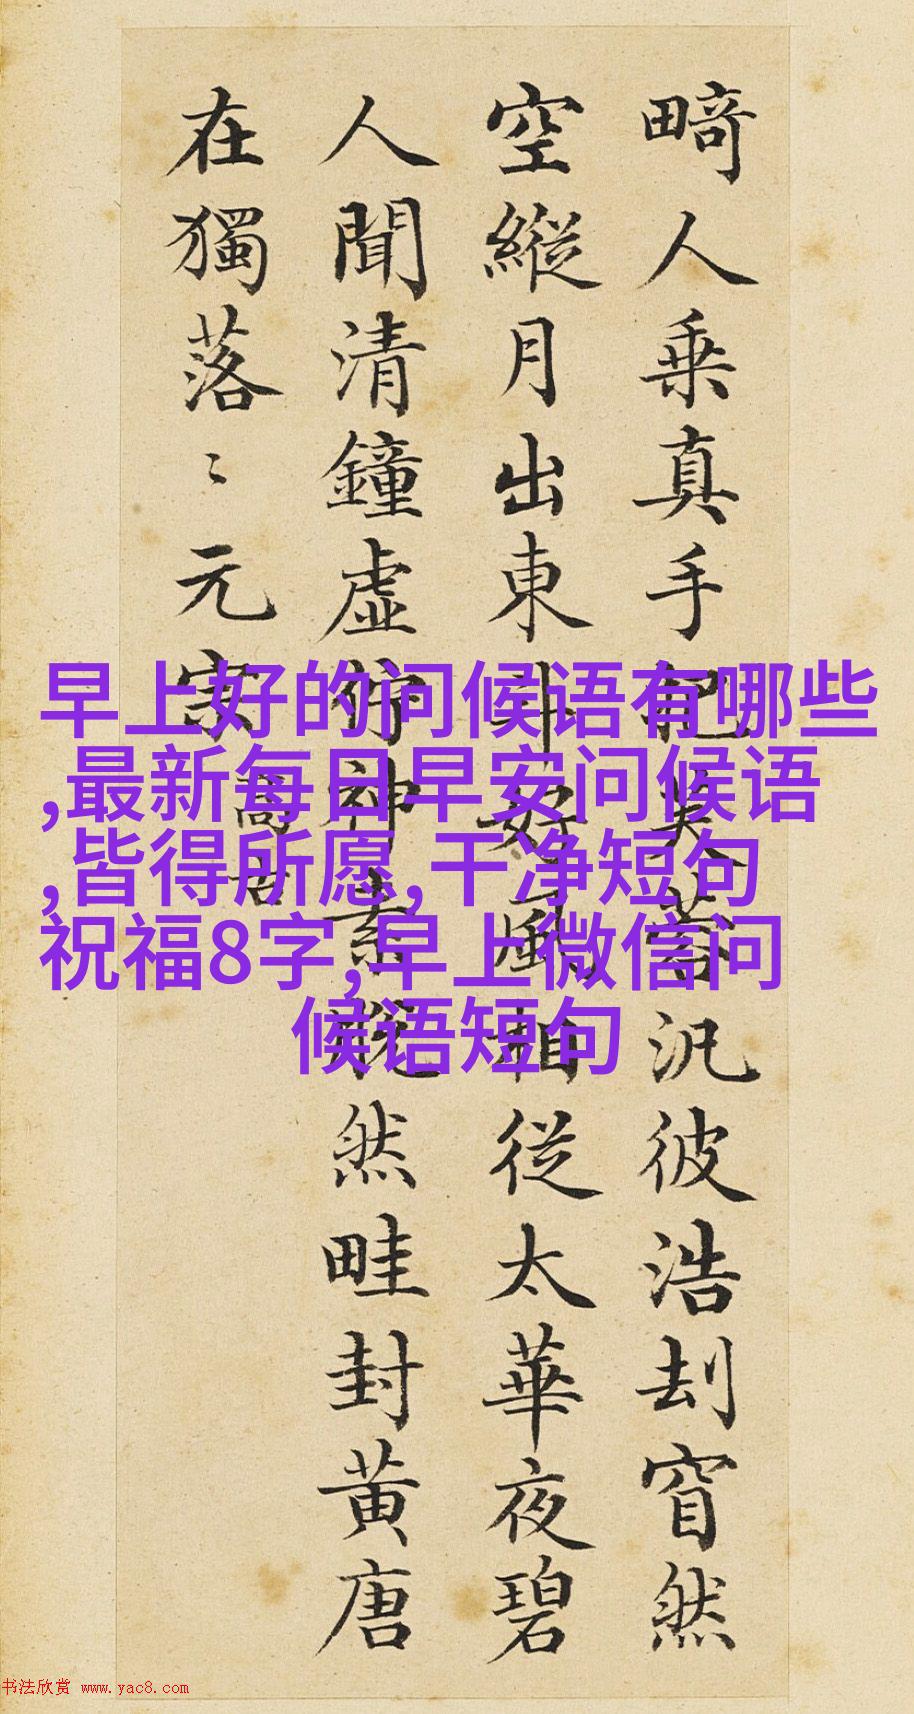 畸人乗真手把芙蓉汎彼浩刦窅然
空縱月出東斗好風相從太華夜碧
人聞清鐘虛佇神素脫然畦封黄唐
在獨落〻元宗
高古
早上好的问候语有哪些
,最新每日早安问候语
,皆得所愿,干净短句
祝福8字,早上微信问
候语短句
书法欣赏 www.yac8.com